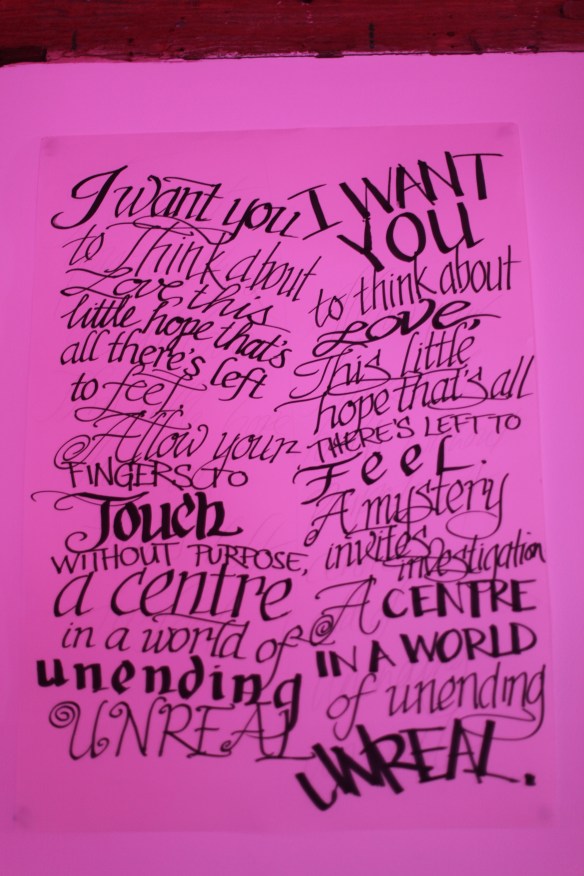 I want you
to Think about
Love this
little hope that's
all there's left
to feel.
Allow your
FINGERS TO
Touch
WITHOUT PURPOSE,
a centre
in a world of
unending
UNREAL
I WANT
YOU
to think about
LOVE,
This little
hope that's all
THERE'S LEFT TO
FeeL.
A mystery
invites
investigation
A CENTRE
IN A WORLD
of unending
UNREAL.